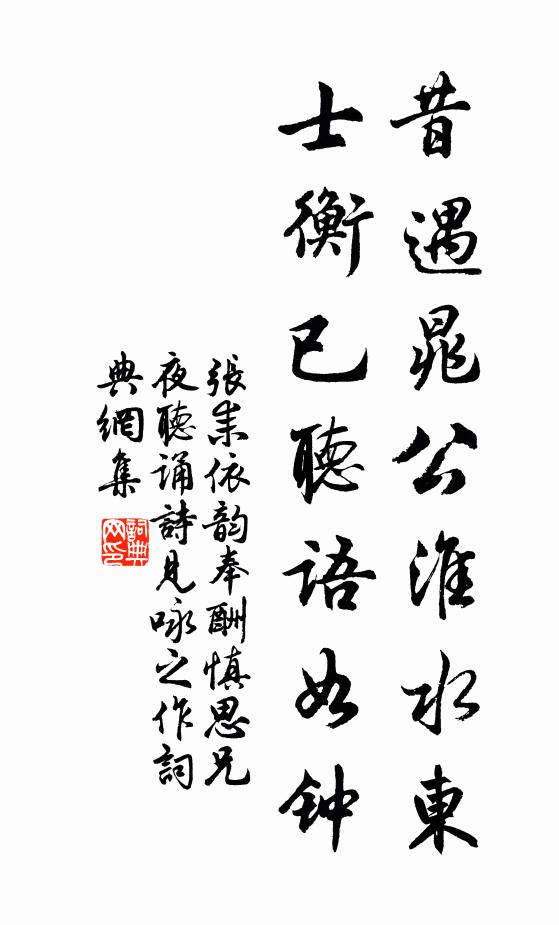 昔遇晁公淮水東
士衡已聽語如钟
張耒依韵奉酬慎思兄
夜聽誦詩見咏之作詞
典網集
詞典网印